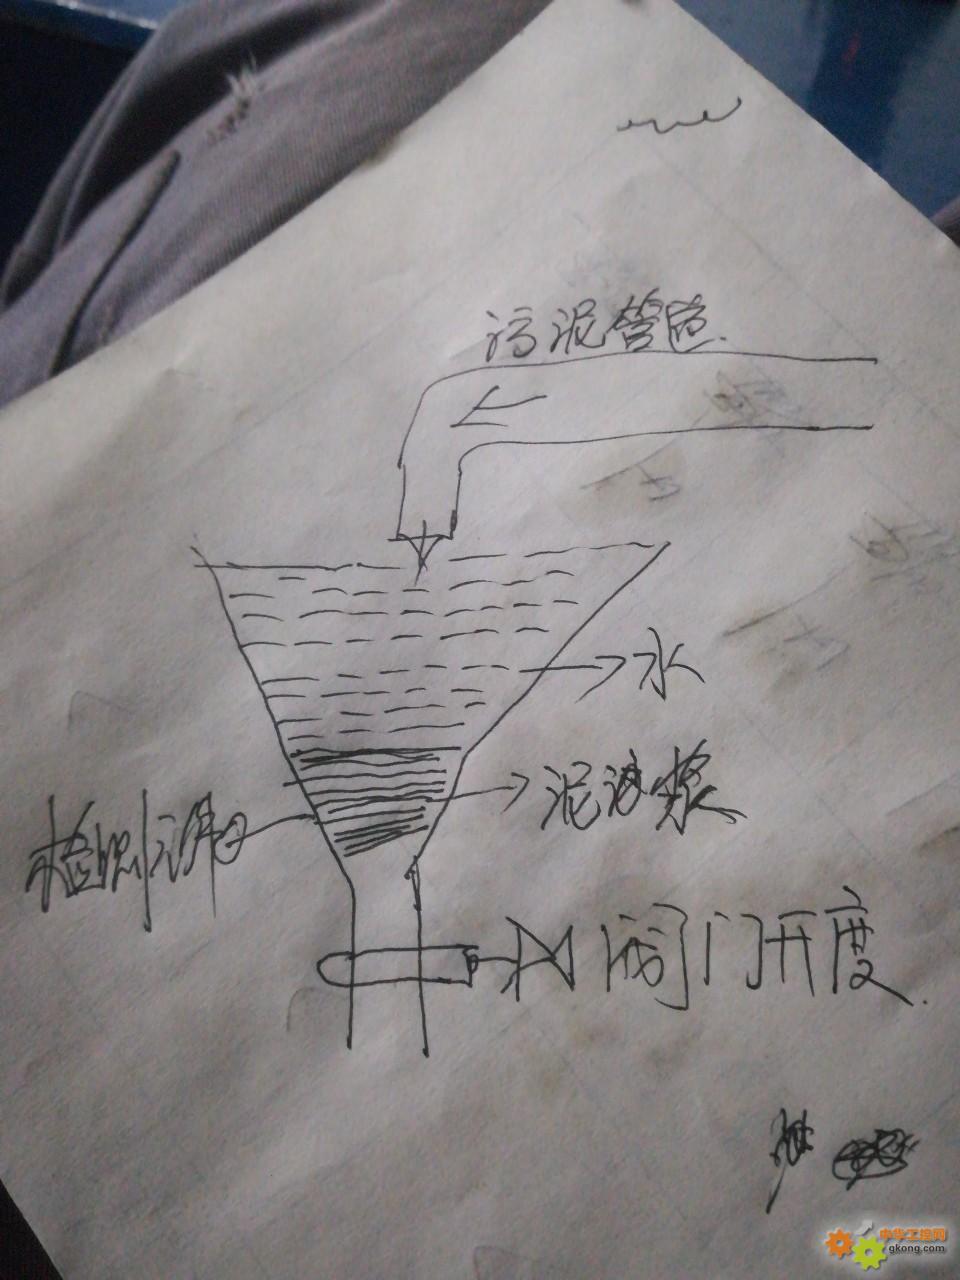 污泥管道.
水
泥浆
检测
阀门开度.
中华工控网
gkong.com